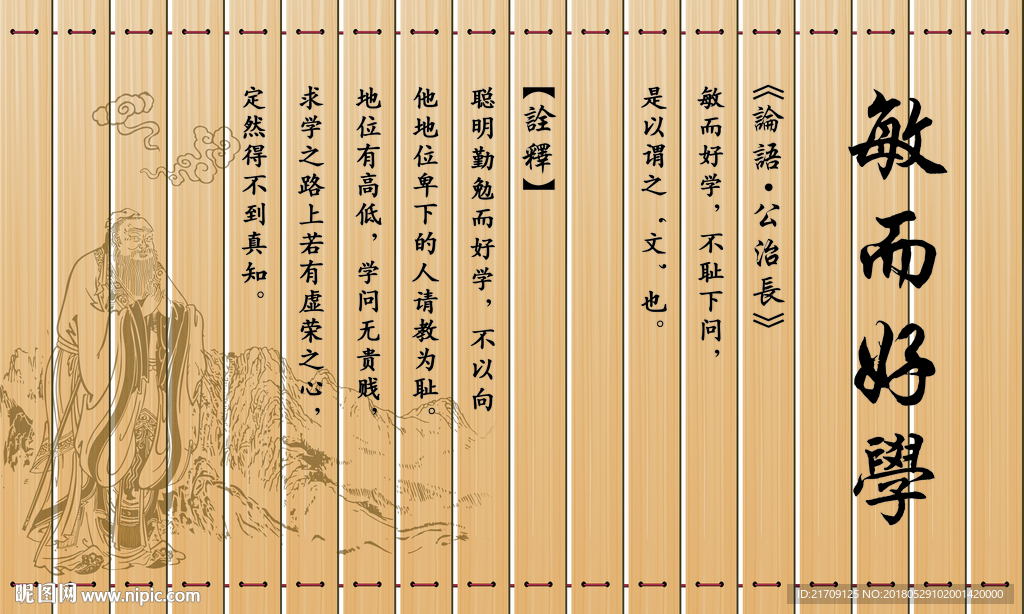 敏而好學
《論語·公治長》
敏而好学，不耻下问，
是以谓之“文”也。
【詮釋】
聪明勤勉而好学，不以向
他地位卑下的人请教为耻。
地位有高低，学问无贵贱，
求学之路上若有虚荣之心，
定然得不到真知。
昵图网 www.nipic.com
ID:21709125 NO:20180529102001420000